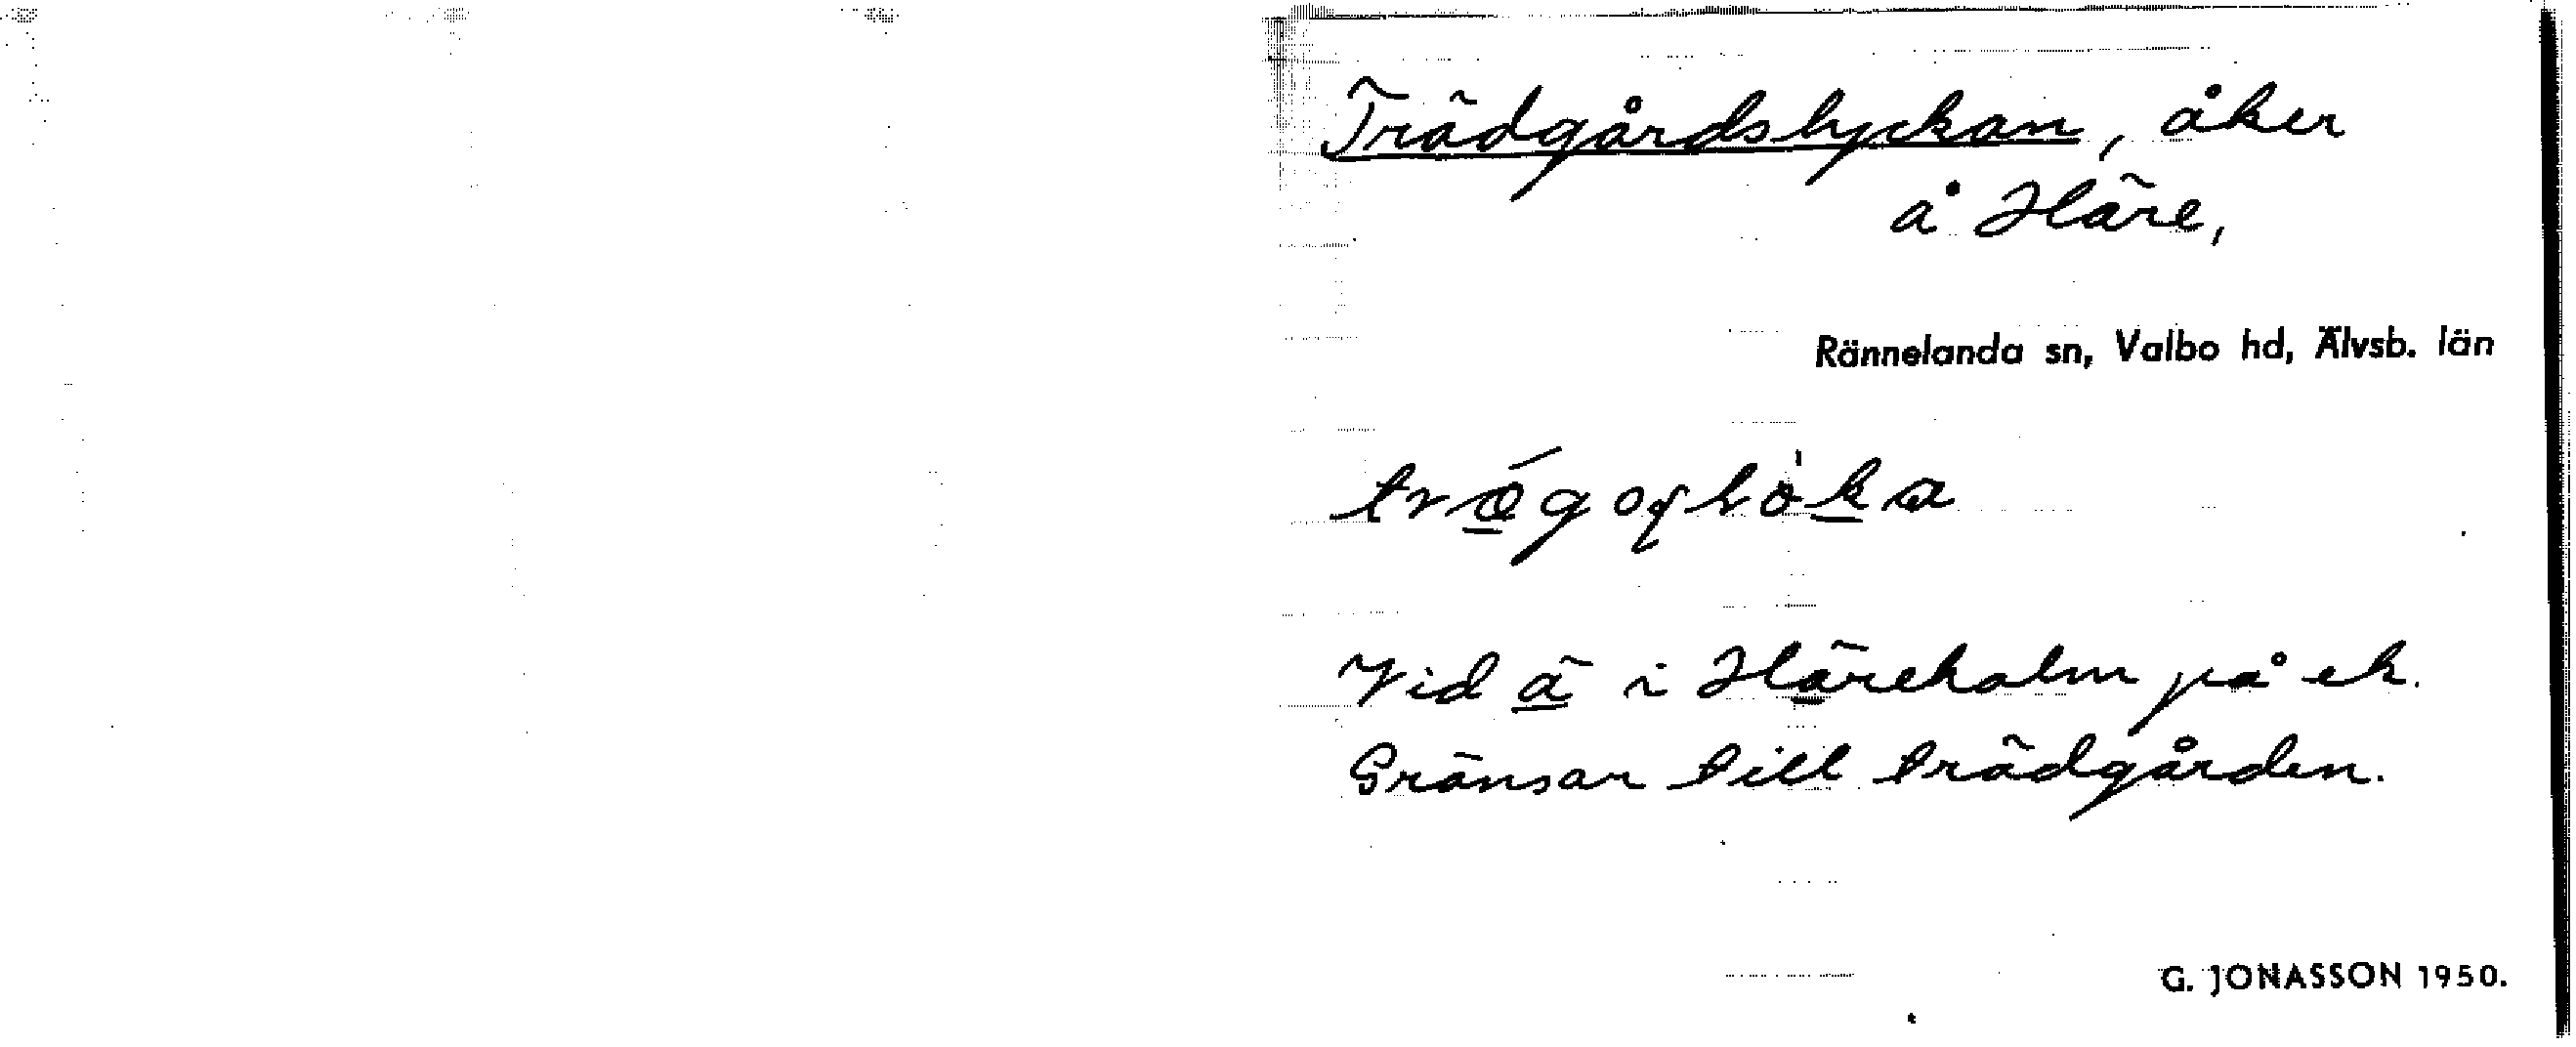 Trädgårdslyckan, åker
å Häre,
Rännelanda sn, Valbo hd, Älvsb. län
Vid ä i Häreholm på ek.
Gränsar till trädgården.
G. JONASSON 1950.